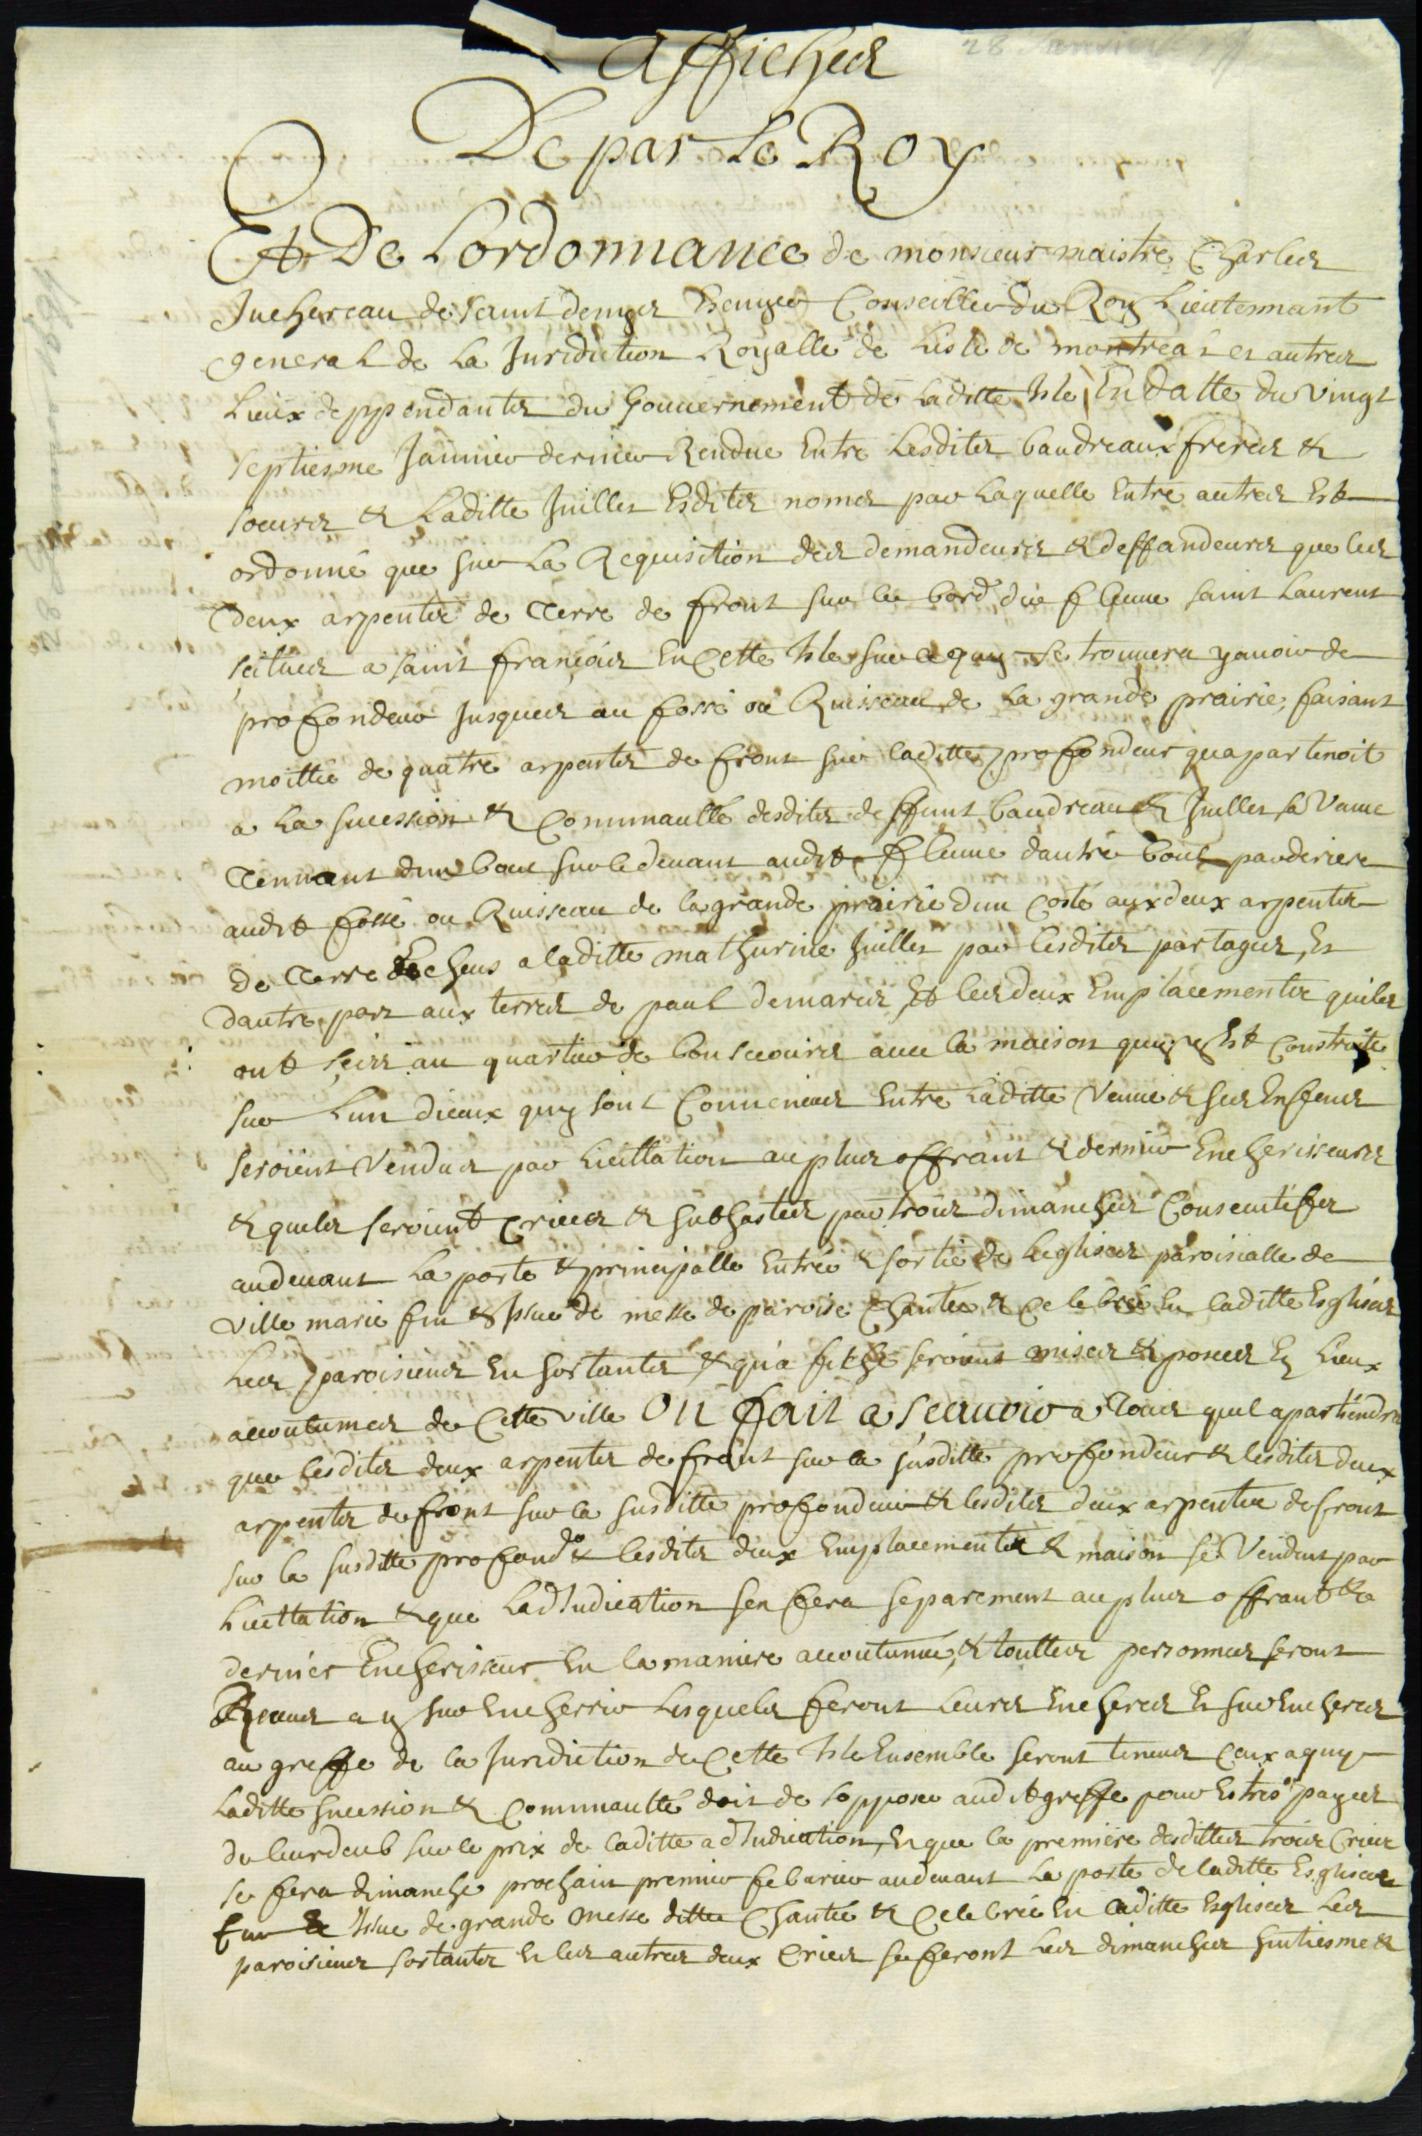 28 Janvier
Affiches
De par Le Roy
Et De Lordonnance de monsieur maistre Charles
Juchereau de saint denys Escuyer Conseiller du Roy Lieutennant
general de La Jurediction Royalle de Lisle de montreal et autres
Lieux deppendantes du Gouuernement de Laditte Isle En datte du vingt
septiesme Januier dernier Rendue Entre Lesdites baudreaux freres &
soeurs & Laditte Juillet Esdites noms par Laquelle Entre autres Est
ordonné que sur La Requisition des demandeurs & deffandeurs que les
deux arpents de Terre de front sur le bord du fleuue saint Laurent
scitues a saint françois En Cette Isle sur ce quy se trouuera y auoir de
profondeur Jusques au fossé ou Ruisseau de La grande prairie, faisant
moittie de quatre arpents de front sur laditte profondeur qua partenoit
a La sucession & Communaulté desdites deffunt baudreau & Juillet sa Vauue
Tennant dun bout sur le deuant audit fleuue dautre bout par deriere
audit fossé ou Ruisseau de la grande prairie dun costé aux deux arpents
de Terre Escheus a laditte mathurine Juillet par lesdites partages, Et
dautre part aux terres de paul demares Et les deux Emplacements quiles
ont scizs au quartier de bonsecours auec la maison quy est Construite
sur Lun dieux quy sont Conuenues Entre Laditte Veuue & ses Enfens
seroient Vendues par Licittation au plus offrant & dernier Encherisseurs
& queles seroient Criees & subhastees par trois dimanches Consecutifes
au deuant La porte & principalle Entrée & sortie de Leglises paroisialle de
Ville marie fin & Issue de messe de paroise Chantée & Celebrée En laditte Esglises
Les paroisiens En sortantes & qu'a fiches seroient mises & posees Es Lieux
accoutumes de Cette ville On fait a scauoir a Tous quil apartiendra
que lesdites deux arpents de front sur la susditte profondeur & lesdites deux
arpents de front sur la susditte profondeur & lesdites deux arpents de front
sur la susditte profond.r & lesdites deux Emplacements & maison se Vendent par
Licittation & que LadJudication sen fera separement au plus offrant &
dernier Encherisseur En la maniere accoutumée, & touttes personnes seront
Receues a y sur Encherrir Lesqueles feront Leurs Encheres Et sur Encheres
au greffe de la Jurediction de Cette Isle Ensemble seront tenues Ceux a quy
Laditte sucession & Communaulté doit de sopposer audit greffe pour Estres payees
de leur deub sur le prix de laditte adJudication, Et que la premiere desdittes trois Criees
se fera dimanche prochain premier febvrier au deuant La porte de laditte Esglises
Issue de grande messe ditte Chantée & Celebrée En laditte Esglises Les
paroisiens sortantes Et les autres deux Criees se feront Les dimanches huitiesme &